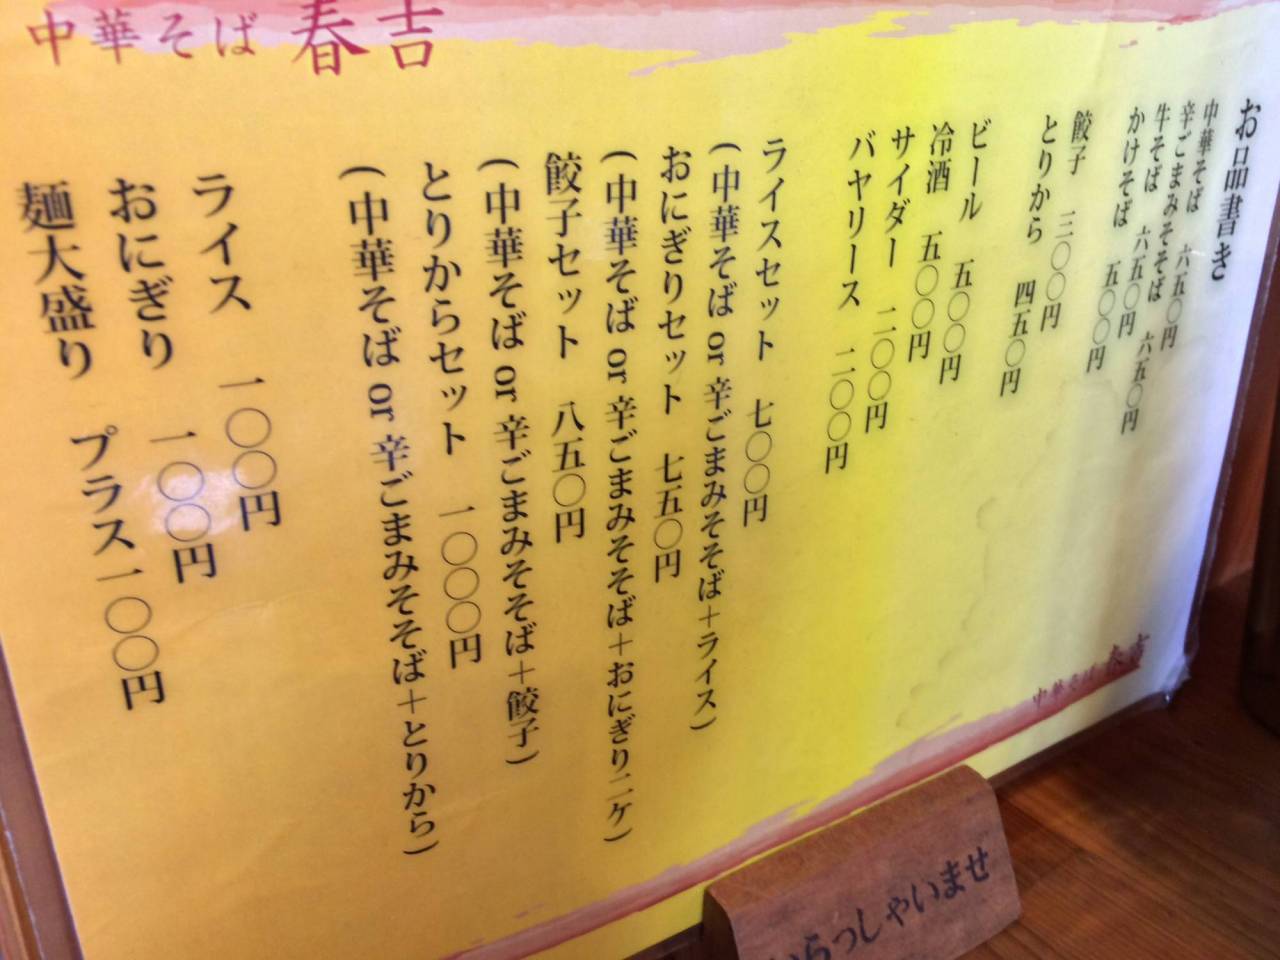 中華そば 春吉
お品書き
中華そば 六五〇円
辛ごまみそそば 六五〇円
牛そば 六五〇円
かけそば 五〇〇円
餃子 三〇〇円
とりから 四五〇円
ビール 五〇〇円
冷酒 五〇〇円
サイダー 二〇〇円
バヤリース 二〇〇円
ライスセット 七〇〇円
(中華そば or 辛ごまみそそば+ライス)
おにぎりセット 七五〇円
(中華そば or 辛ごまみそそば+おにぎり二ケ)
餃子セット 八五〇円
(中華そば or 辛ごまみそそば+餃子)
とりからセット 一〇〇〇円
(中華そば or 辛ごまみそそば+とりから)
ライス 一〇〇円
おにぎり 一〇〇円
麺大盛り プラス一〇〇円
中華そば 春吉
いらっしゃいませ